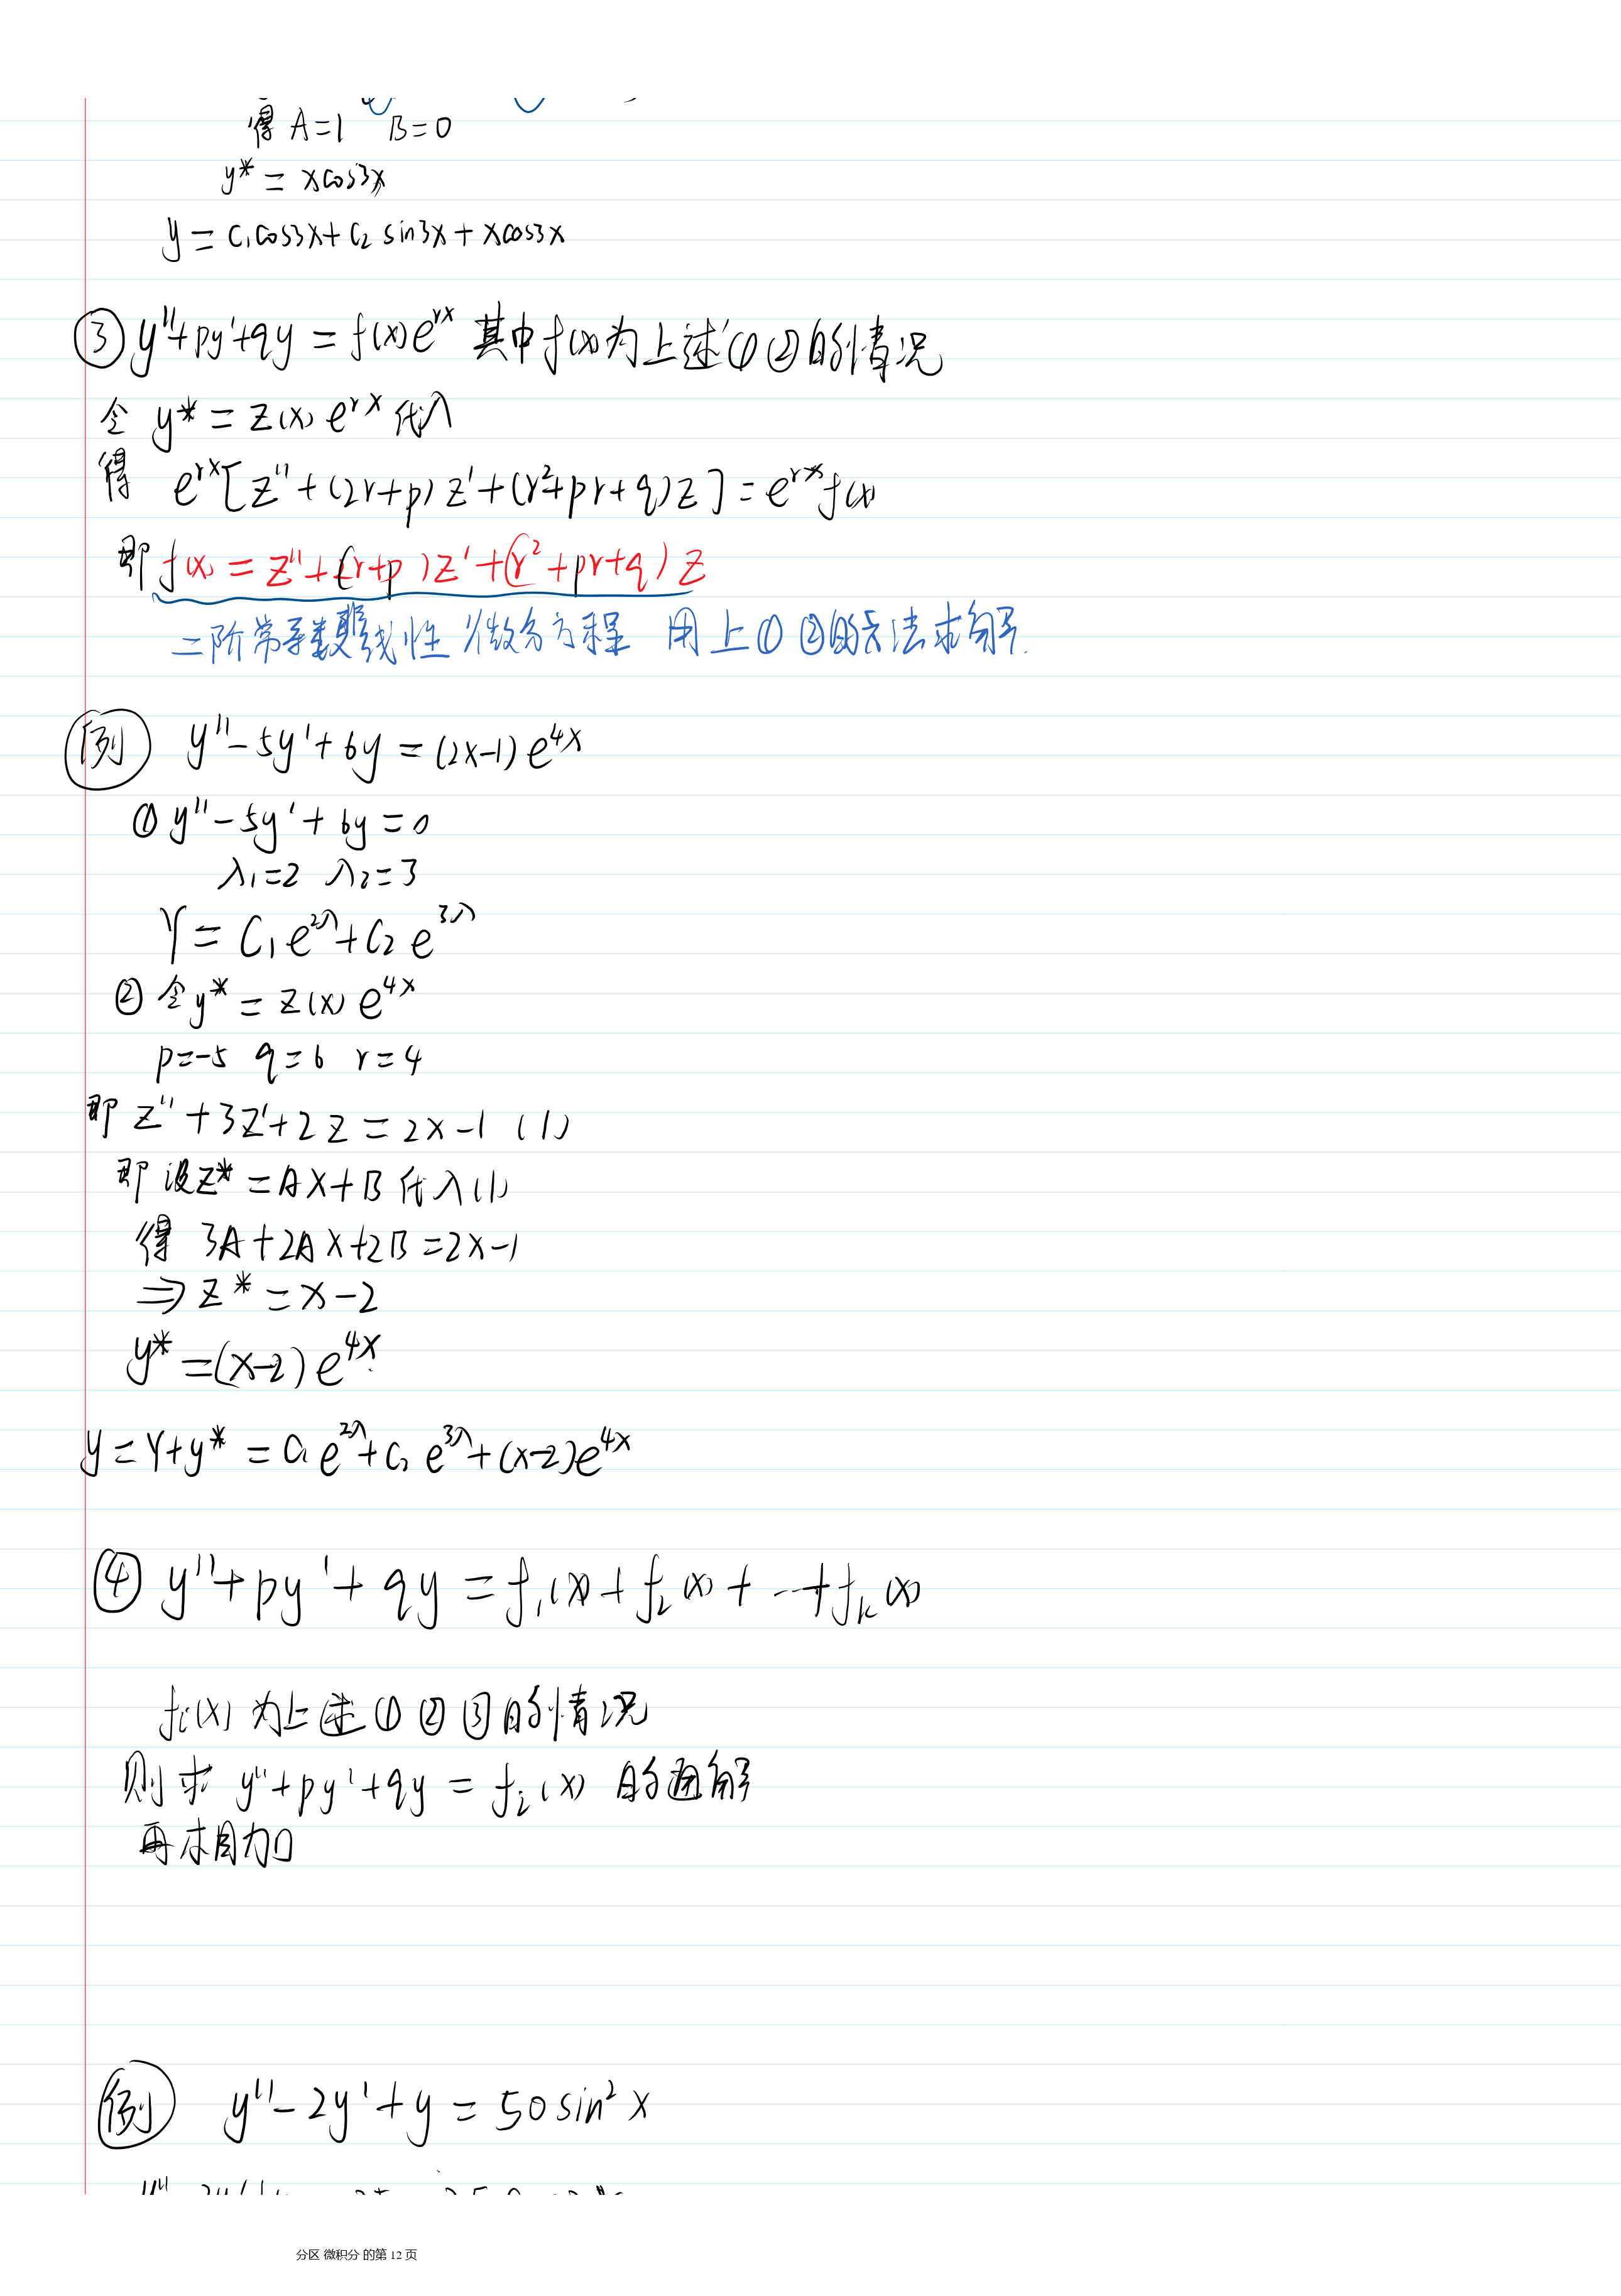 得 A=1 B=0
y* = xcos3x
y = c₁cos3x + c₂ sin3x + xcos3x
③ y''+py'+qy = f(x)e^{rx} 其中f(x)为上述①②的情况
令 y* = z(x) e^{rx} 代入
得 e^{rx}[z''+(2r+p)z'+(r²+pr+q)z] = e^{rx}f(x)
即 f(x) = z''+(2r+p)z'+(r²+pr+q)z
二阶常系数非线性微分方程 用上①②的方法求解.
例 y''-5y'+6y = (2x-1)e^{4x}
① y''-5y'+6y = 0
λ₁=2 λ₂=3
Y = C₁e^{2λ}+C₂e^{3λ}
② 令y* = z(x) e^{4x}
p=-5 q=6 r=4
即 z''+3z'+2z = 2x-1 (1)
即 设z* = Ax+B 代入(1)
得 3A+2Ax+2B = 2x-1
⇒ z* = x-2
y* = (x-2)e^{4x}
y = Y+y* = C₁e^{2λ}+C₂e^{3λ}+(x-2)e^{4x}
④ y''+py'+qy = f₁(x)+f₂(x)+…+f_k(x)
f_i(x) 为上述①②③的情况
则求 y''+py'+qy = f_i(x) 的通解
再相加
例 y''-2y'+y = 50sin²x
分区 微积分 的第 12 页